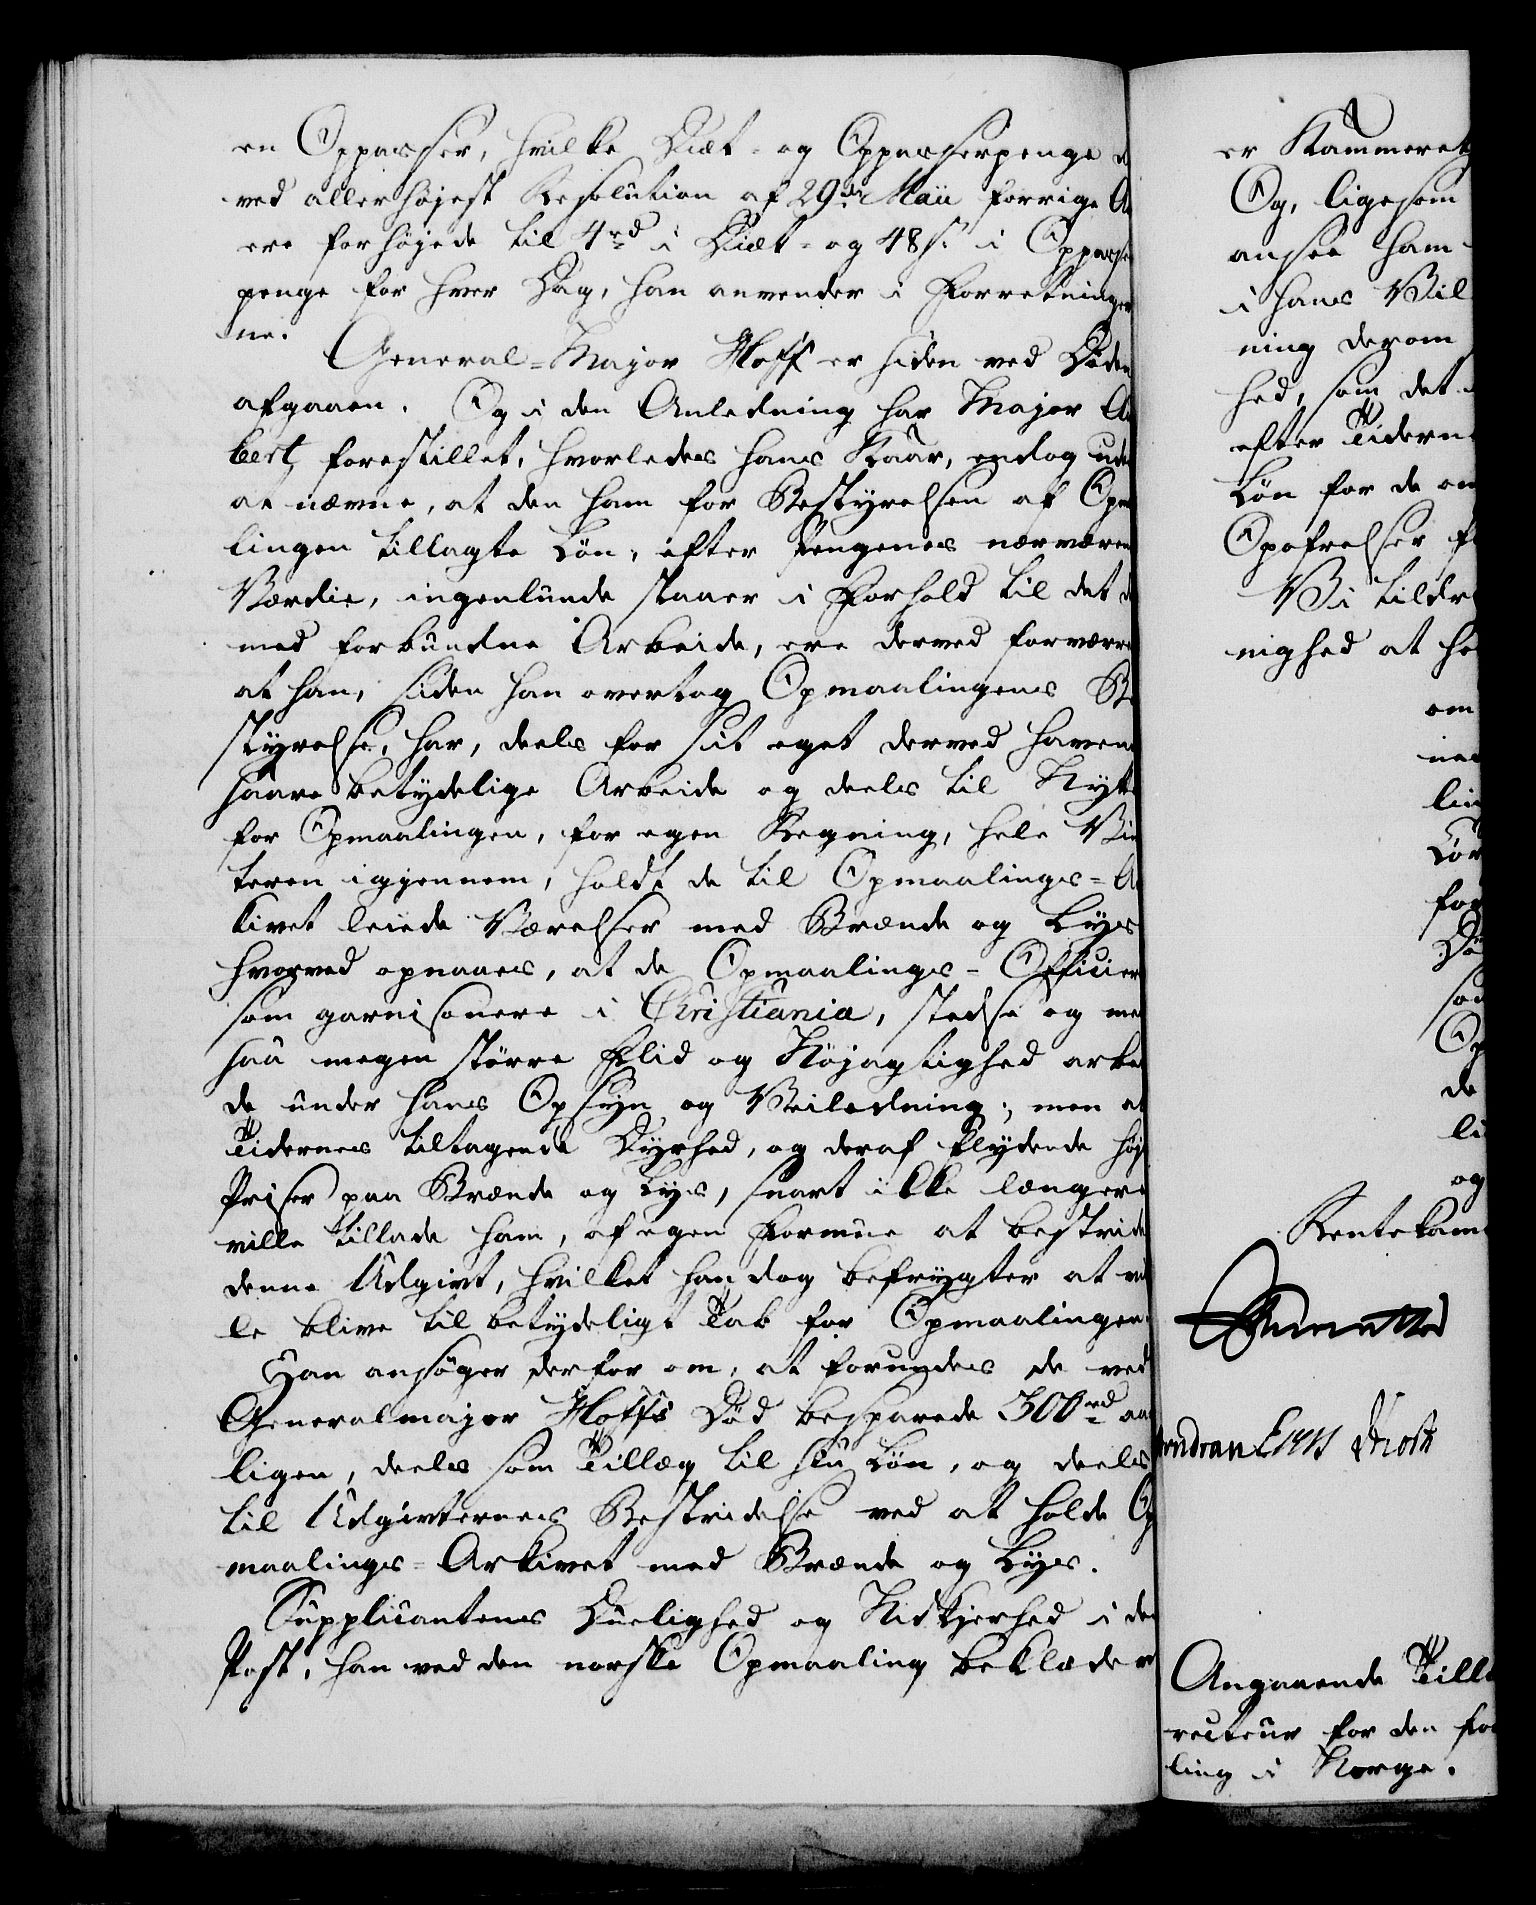 en Oppasser, hvilke Diæt- og Oppasserpenge
ved allerhøjest Resolution af 29de Maii forrige
ere forhøjede til 4rd i Diæt- og 48 s. i Oppasse
penge for hver Dag, han anvender i Forretninger
ne.
General-Major Hoff er siden ved Døden
afgaaen. Og i den Anledning har Major
bert, forestillet, hvorledes hans Kaar, endog ude
at nævne, at den ham for Bestyrelsen af Opm
lingen tillagte Løn, efter Pengenes nærværen
Værdie, ingenlunde staaer i Forhold til det d
med forbundne Arbeide, ere derved forværre
at han, siden han overtog Opmaalingens Be
styrelse, har, deels for sit eget derved havene
saare betydelige Arbeide og deels til Nytte
for Opmaalingen, for egen Regning, hele Vin
teren igjennem, holdt de til Opmaalings-A
kivet leiede Værelser med Brænde og Lys
hvorved opnaaes, at de Opmaalings-Officier
som garnisonere i Christiania, stedse og med
saa megen større Flid og Nøjagtighed arbei
de under hans Opsyn og Veiledning; men at
Tidernes tiltagende Dyrhed, og deraf flydende høje
Priser paa Brænde og Lys, snart ikke længere
ville tillade ham, af egen Formue at bestride
denne Udgivt, hvilket han dog befrygter at vil
le blive til betydeligt Tab for Opmaalingen.
Han ansøger derfor om, at forundes de ved
Generalmajor Hoffs Død besparede 300rd aar
ligen, deels som Tillæg til sin Løn, og deels
til Udgivternes Bestridelse ved at holde Op
maalings-Arkivet med Brænde og Lys.
Supplicantens Duelighed og Nidkjerhed i den
Post, han ved den norske Opmaaling beklæder
er Kammeret
Og, ligesom
ansee ham
i hans Vil
ning derom
hed, som det
efter Tidern
Løn for de om
Opofrelser f
Vi tildr
nighed at he
om
lin
Løn
for
Dø
som
Op
de
li
og
Rentekam
Angaaende Till
recteur for den fo
ling i Norge.